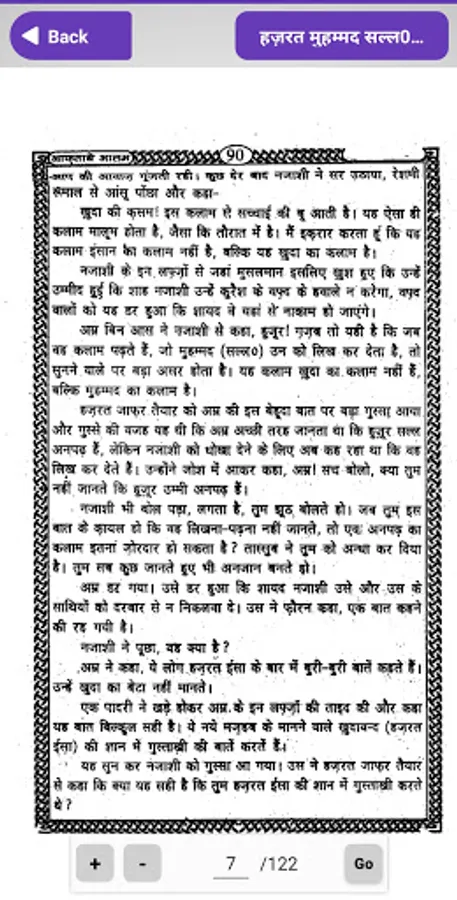 Back
हज़रत मुहम्मद सल्ल0...
आफ़ताबे आलम
90
आप की आवाज़ गूंजती रही। कुछ देर बाद नजाशी ने सर उठाया, रेशमी
रूमाल से आंसू पोंछा और कहा-
ख़ुदा की क़सम! इस कलाम से सच्चाई की बू आती है। यह ऐसा ही
कलाम मालूम होता है, जैसा कि तौरात में है। मैं इक़रार करता हूं कि यह
कलाम इंसान का कलाम नहीं है, बल्कि यह ख़ुदा का कलाम है।
नजाशी के इन लफ़्ज़ों से जहां मुसलमान इसलिए ख़ुश हुए कि उन्हें
उम्मीद हुई कि शाह नजाशी उन्हें क़ुरैश के वफ़्द के हवाले न करेगा, वफ़्द
वालों को यह डर हुआ कि शायद वे यहां से नाकाम हो जाएंगे।
अम्र बिन आस ने नजाशी से कहा, हुज़ूर! ग़ज़ब तो यही है कि जब
वह कलाम पढ़ते हैं, जो मुहम्मद (सल्ल०) उन को लिख कर देता है, तो
सुनने वाले पर बड़ा असर होता है। यह कलाम ख़ुदा का कलाम नहीं हैं,
बल्कि मुहम्मद का कलाम है।
हज़रत जाफ़र तैयार को अम्र की इस बेहूदा बात पर बड़ा गुस्सा आया
और गुस्से की वजह यह थी कि अम्र अच्छी तरह जानता था कि हुज़ूर सल्ल
अनपढ़ हैं, लेकिन नजाशी को धोखा देने के लिए अब कह रहा था कि वह
लिख कर देते हैं। उन्होंने जोश में आकर कहा, अम्र! सच बोलो, क्या तुम
नहीं जानते कि हुज़ूर उम्मी अनपढ़ हैं।
नजाशी भी बोल पड़ा, लगता है, तुम झूठ बोलते हो। जब तुम इस
बात के क़ायल हो कि वह लिखना-पढ़ना नहीं जानते, तो एक अनपढ़ का
कलाम इतना ज़ोरदार हो सकता है? तास्सुब ने तुम को अन्धा कर दिया
है। तुम सब कुछ जानते हुए भी अनजान बनते हो।
अम्र डर गया। उसे डर हुआ कि शायद नजाशी उसे और उस के
साथियों को दरबार से न निकलवा दे। उस ने फ़ौरन कहा, एक बात कहने
की रह गयी है।
नजाशी ने पूछा, वह क्या है?
अम्र ने कहा, ये लोग हज़रत ईसा के बार में बुरी-बुरी बातें कहते हैं।
उन्हें ख़ुदा का बेटा नहीं मानते।
एक पादरी ने खड़े होकर अम्र के इन लफ़्ज़ों की ताइद की और कहा
यह बात बिल्कुल सही है। ये नये मज़हब के मानने वाले ख़ुदावन्द (हज़रत
ईसा) की शान में गुस्ताख़ी की बातें करतें हैं।
यह सुन कर नजाशी को गुस्सा आ गया। उस ने हज़रत जाफ़र तैयार
से कहा कि क्या यह सही है कि तुम हज़रत ईसा की शान में गुस्ताख़ी करते
थे?
+ - 7 /122 Go